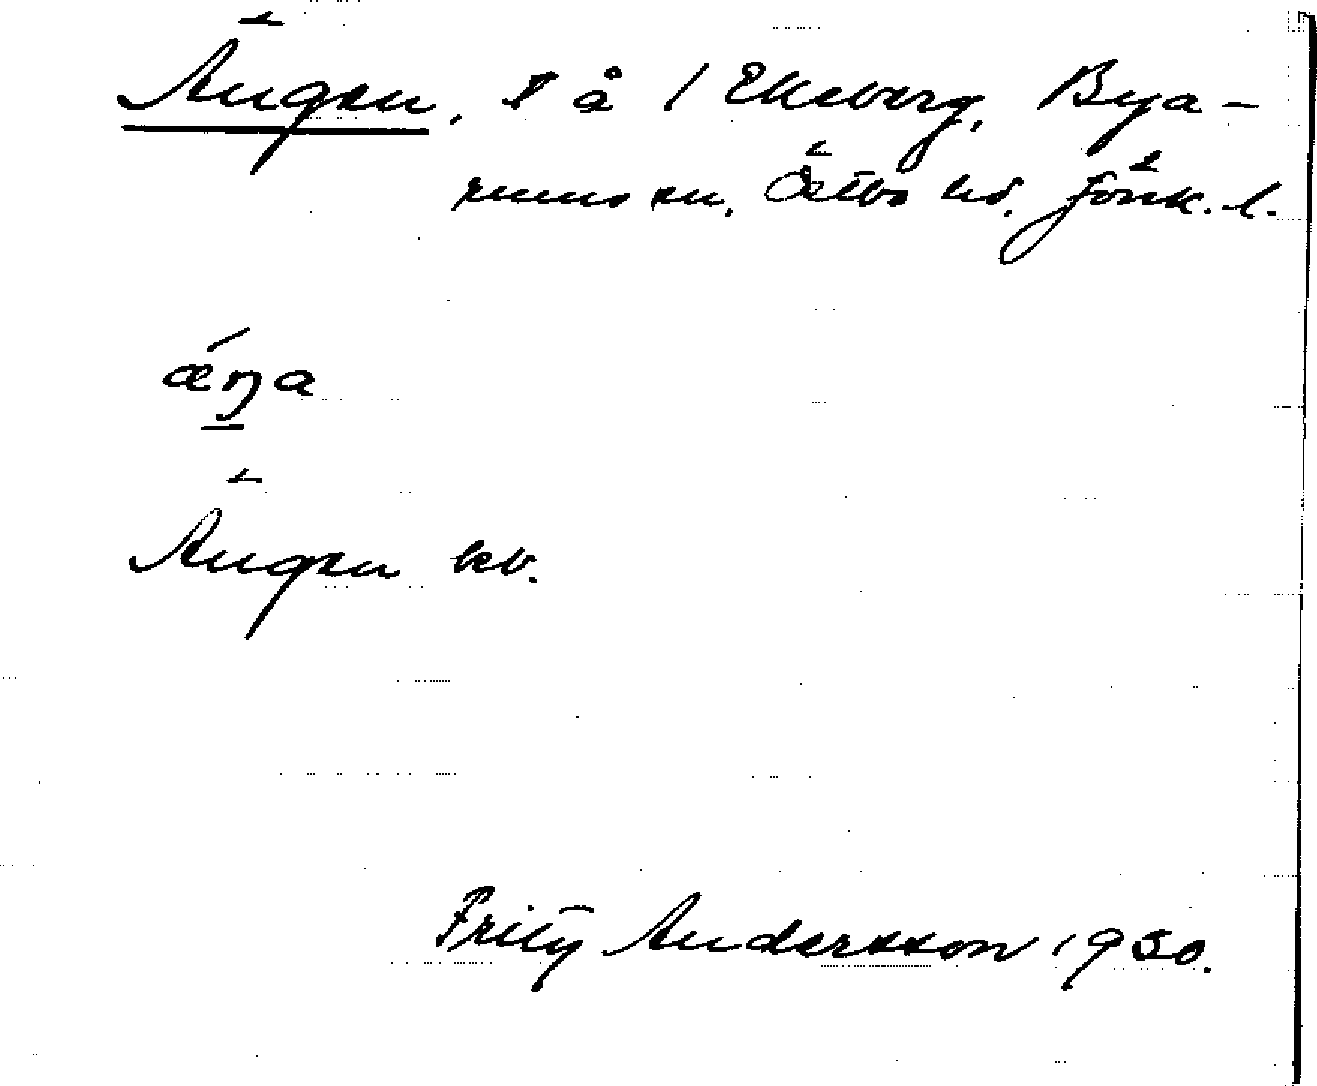 Ängen, på 1 Ekeberg, Bya-
rums sn, Östbo hd, Jönk. l.
ǽŋa
Ängen kv.
Frity Andersson 1930.